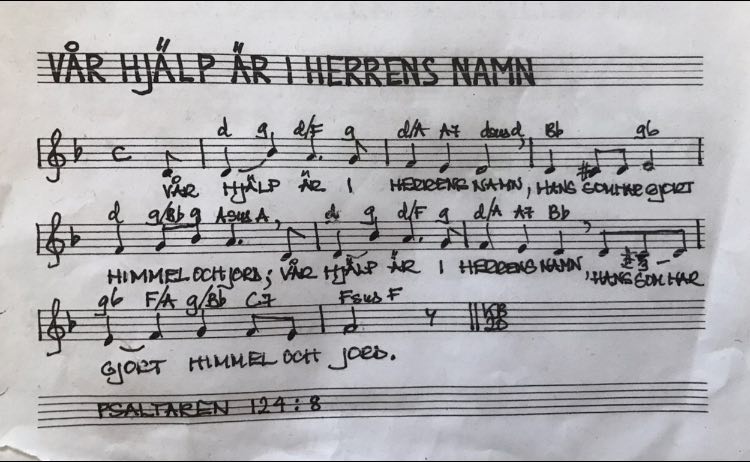 VÅR HJÄLP ÄR I HERRENS NAMN
d g d/F g d/A A7 dsus d Bb g6
C
VÅR HJÄLP ÄR I HERRENS NAMN, HANS SOM HAR GJORT
d g/Bb g Asus A d g d/F g d/A A7 Bb
HIMMEL OCH JORD; VÅR HJÄLP ÄR I HERRENS NAMN, HANS SOM HAR
g6 F/A g/Bb C7 Fsus F
KB
GJORT HIMMEL OCH JORD.
PSALTAREN 124:8